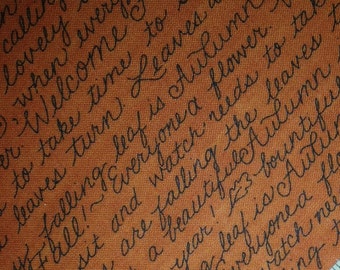 calling
lovely
when every
Welcome
to take time to s
leaves turn. Leaves a
falling leaf is Autumn
Fall!~Everyone a flower
sit and watch needs to take
are falling the leaves t
a beautiful Autumn
year! bountiful
leaf is Autumn
Everyone a flo
watch nee
ng t